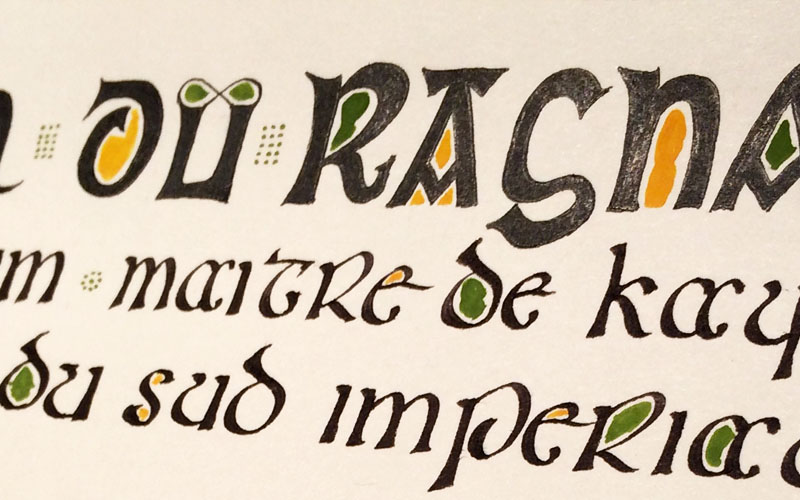 DU RAGNA
maitre de kay
du sud imperia